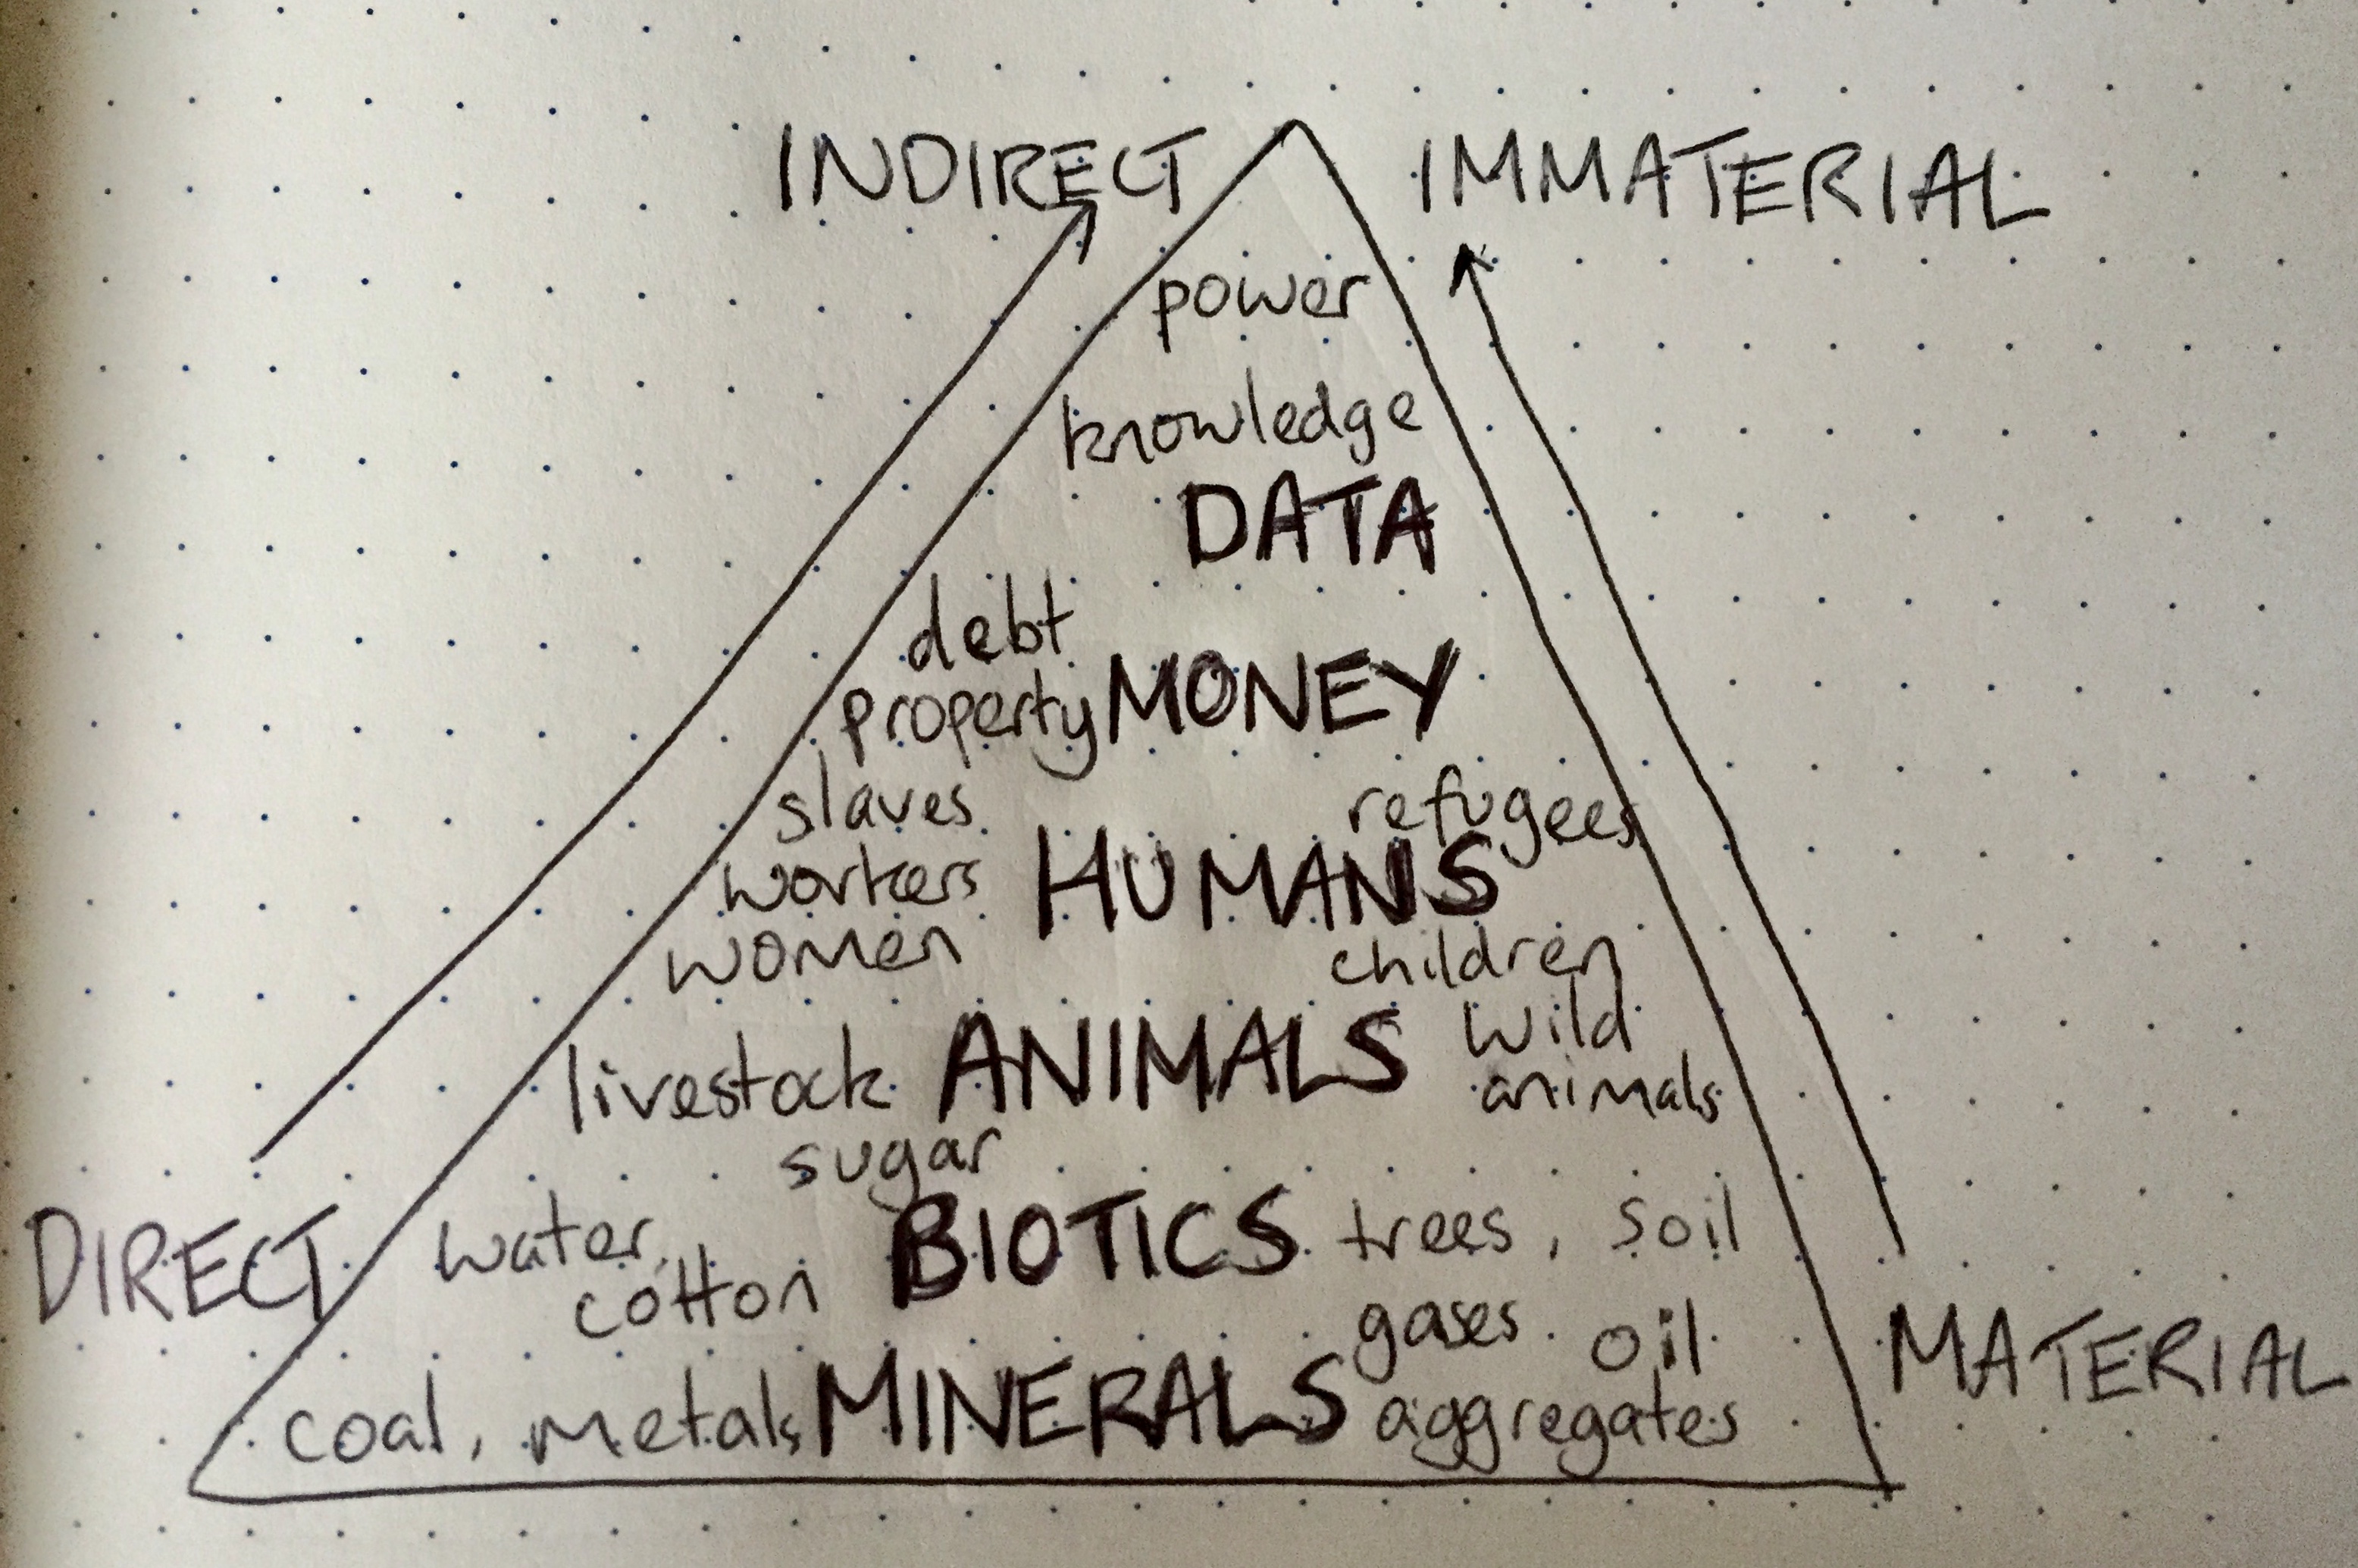 INDIRECT IMMATERIAL
power
knowledge
DATA
debt
property MONEY
slaves refugees
workers HUMANS
women children
livestock ANIMALS wild
animals
sugar
water, BIOTICS trees, soil
cotton
gases oil
coal, metals MINERALS aggregates
DIRECT MATERIAL